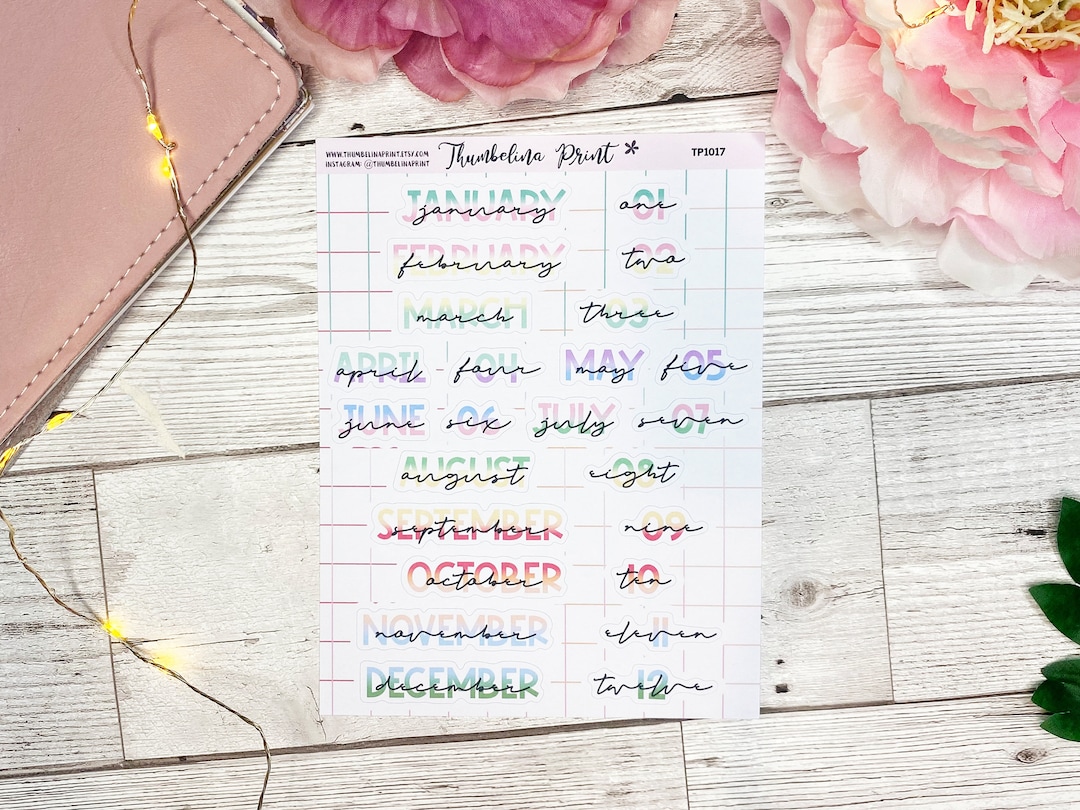 WWW.THUMBELINAPRINT.ETSY.COM
INSTAGRAM: @THUMBELINAPRINT
Thumbelina Print *
TP1017
JANUARY january 01 one
FEBRUARY february 02 two
MARCH march 03 three
APRIL april 04 four MAY may 05 five
JUNE june 06 six JULY july 07 seven
AUGUST august 08 eight
SEPTEMBER september 09 nine
OCTOBER october 10 ten
NOVEMBER november 11 eleven
DECEMBER december 12 twelve